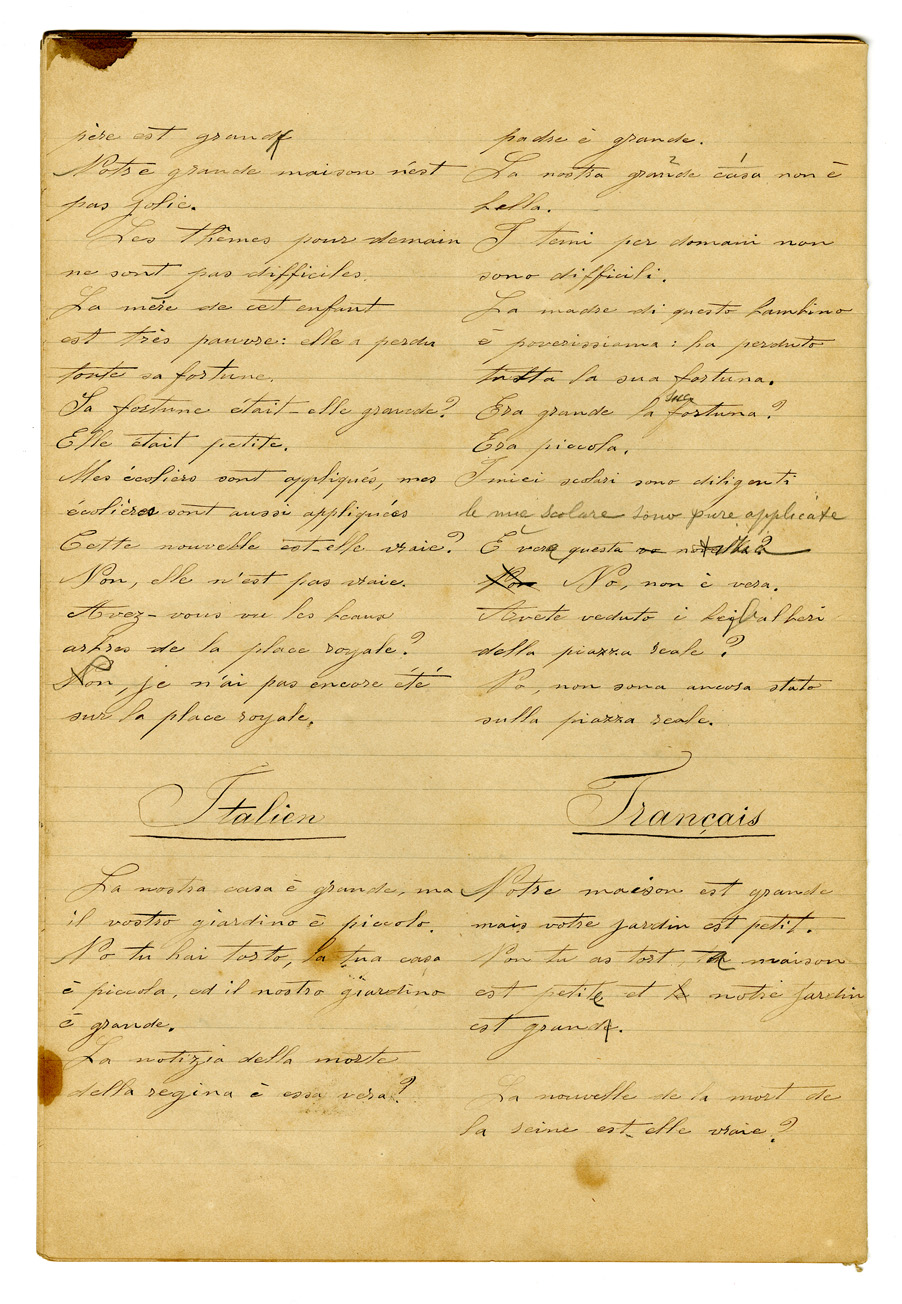 père est grand
Notre grande maison n'est
pas jolie.
Les thèmes pour demain
ne sont pas difficiles.
La mère de cet enfant
est très pauvre: elle a perdu
toute sa fortune.
Sa fortune était-elle grande?
Elle était petite.
Mes écoliers sont appliqués, mes
écolières sont aussi appliquées
Cette nouvelle est-elle vraie?
Non, elle n'est pas vraie.
Avez-vous vu les beaux
arbres de la place royale?
Non, je n'ai pas encore été
sur la place royale.
padre è grande.
La nostra grande casa non è
bella.
I temi per domani non
sono difficili.
La madre di questo bambino
è poverissiama: ha perduto
tutta la sua fortuna.
Era grande la sua fortuna?
Era piccola.
I miei scolari sono diligenti
le mie scolare sono pure applicate
È vera questa
No, non è vera.
Avete veduto i begli alberi
della piazza reale?
No, non sona ancora stato
sulla piazza reale.
Italien
La nostra casa è grande, ma
il vostro giardino è piccolo.
No tu hai torto, la tua casa
è piccola, ed il nostro giardino
è grande.
La notizia della morte
della regina è essa vera?
Français
Notre maison est grande
mais votre jardin est petit.
Non tu as tort, ta maison
est petite et notre jardin
est grand.
La nouvelle de la mort de
la reine est-elle vraie?